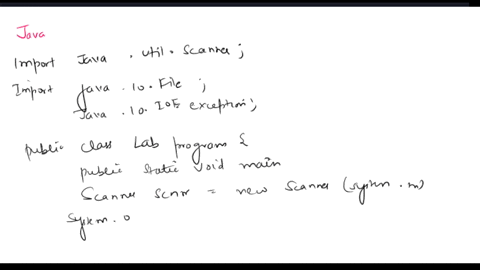 Java
Import Java . util . Scanner ;
Import Java . io . File ;
Java . io . IOE exception ;
public class Lab program {
public static void main
Scanner scnr = new Scanner (system . in)
System . o